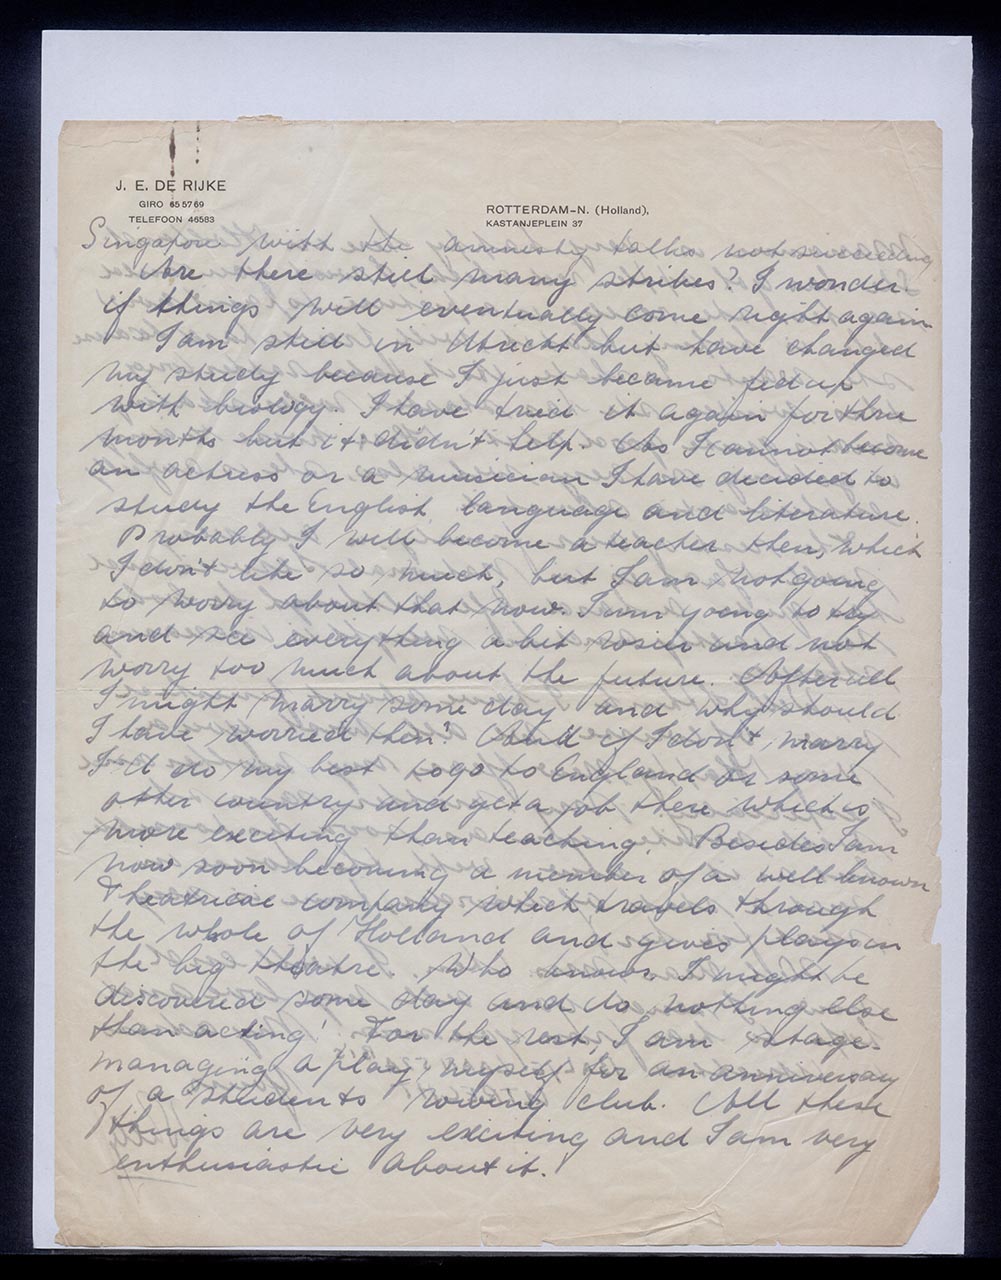 J. E. DE RIJKE
GIRO 655769
TELEFOON 46583
ROTTERDAM-N. (Holland),
KASTANJEPLEIN 37
Singapore with the amnesty talks not succeeding
Are there still many strikes? I wonder
if things will eventually come right again
I am still in Utrecht but have changed
my study because I just became fed up
with biology. I have tried it again for three
months but it didn't help. As I cannot become
an actress or a musician I have decided to
study the English language and literature.
Probably I will become a teacher then, which
I don't like so much, but I am not going
to worry about that now. I am going to try
and see everything a bit rosier and not
worry too much about the future. After all
I might marry some day and why should
I have worried then? And if I don't marry
I'd do my best to go to England or some
other country and get a job there which is
more exciting than teaching. Besides I am
now soon becoming a member of a well known
Theatrical company which travels through
the whole of Holland and gives plays in
the big theatre. Who knows I might be
discovered some day and do nothing else
than acting! For the rest, I am stage-
managing a play myself for an anniversay
of a students rowing club. All these
things are very exciting and I am very
enthusiastic about it!